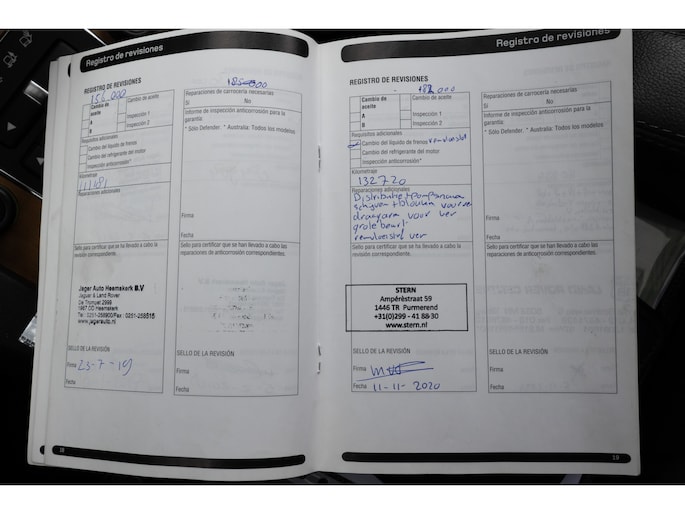 Registro de revisiones
REGISTRO DE REVISIONES
156.000
Cambio de aceite
Cambio de aceite
A
Inspección 1
B
Inspección 2
Requisitos adicionales
Cambio del líquido de frenos
Cambio del refrigerante del motor
Inspección anticorrosión*
Kilometraje
111181
Reparaciones adicionales
Sello para certificar que se ha llevado a cabo la revisión correspondiente.
Jager Auto Heemskerk B.V
Jaguar & Land Rover
De Trompet 2999
1967 DD Heemskerk
Tel.: 0251-256900/Fax: 0251-259516
www.jagerauto.nl
SELLO DE LA REVISIÓN
Firma 23-7-19
Fecha
18
185.000
Reparaciones de carrocería necesarias
Sí No
Informe de inspección anticorrosión para la garantía:
* Sólo Defender. * Australia: Todos los modelos
Firma
Fecha
Sello para certificar que se han llevado a cabo las reparaciones de anticorrosión correspondientes.
SELLO DE LA REVISIÓN
Firma
Fecha
Registro de revisiones
REGISTRO DE REVISIONES
Cambio de aceite
Cambio de aceite
A
Inspección 1
B
Inspección 2
Requisitos adicionales
Cambio del líquido de frenos
Cambio del refrigerante del motor
Inspección anticorrosión*
Kilometraje
132720
Reparaciones adicionales
voor ver
grote beurt
remvloeistof ver
Sello para certificar que se ha llevado a cabo la revisión correspondiente.
STERN
Ampèrestraat 59
1446 TR Purmerend
+31(0)299 - 41 88 30
www.stern.nl
SELLO DE LA REVISIÓN
Firma
Fecha 11-11-2020
Reparaciones de carrocería necesarias
Sí No
Informe de inspección anticorrosión para la garantía:
* Sólo Defender. * Australia: Todos los modelos
Firma
Fecha
Sello para certificar que se han llevado a cabo las reparaciones de anticorrosión correspondientes.
SELLO DE LA REVISIÓN
Firma
Fecha
19